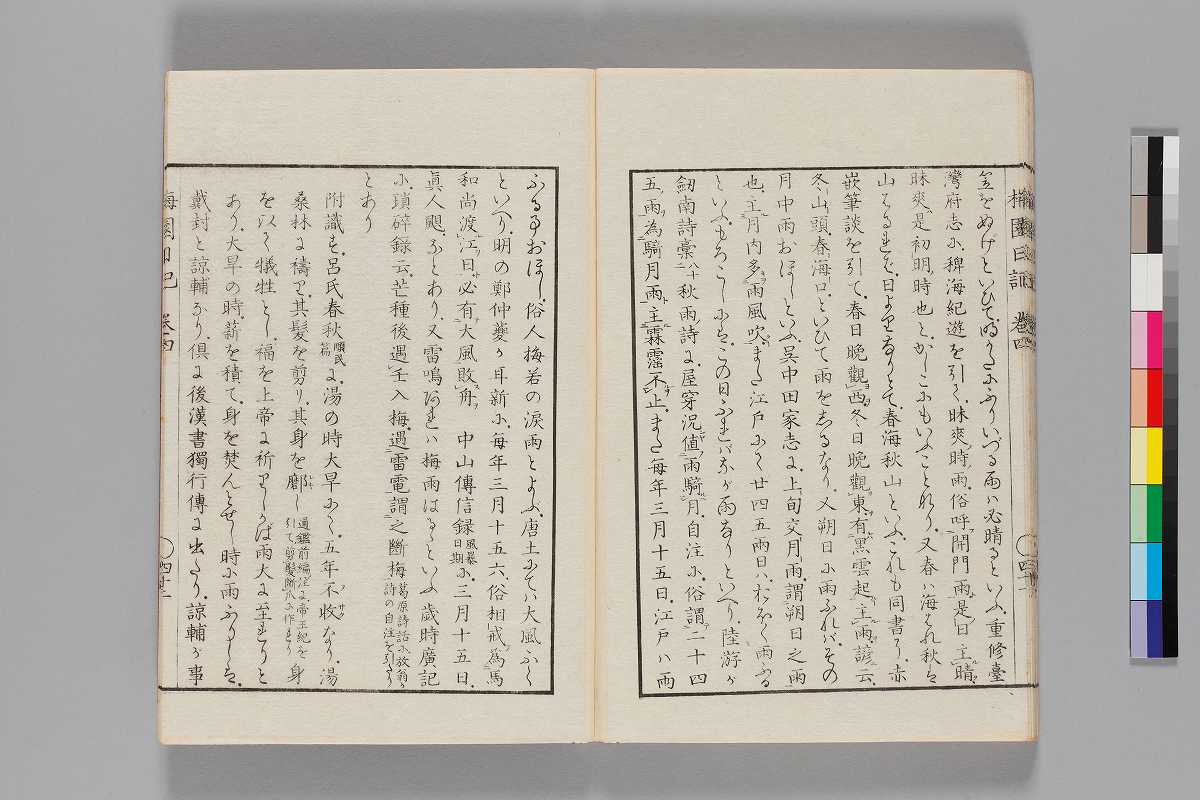 梅園日記 巻四
笠をぬげといひて、時のかたにふりいづる雨ハ必晴るといふ、重修臺
灣府志に、稗海紀遊を引く、昧爽時雨、俗呼開門雨、是日主晴、
昧爽是初明時也と、かしこにもいふことなり、又春ハ海はれ秋は
山はるれば、日よりなりとて、春海秋山といふ、これも同書に、赤
嵌筆談を引て、春日晩觀西、冬日晩觀東、有黑雲起、主雨、諺云、
冬山頭、春海口、といひて雨をしるなり、又朔日に雨ふれば、その
月中雨おほしといふ、呉中田家志に、上旬交月雨、謂朔日之雨
也、主月内多雨風吹、また江戸にて廿四五両日ハ、おほく雨ふる
といふ、もろこしには、この日ふれバ久しき雨なりといへり、陸游が
劔南詩稾八十秋雨詩に、屋穿況値雨騎月、自注に、俗謂二十四
五、雨為騎月雨、主霖霪不止、また毎年三月十五日、江戸ハ雨
ふる事おほし、俗人梅若の涙雨とよぶ、唐土にてハ大風ふく
といへり、明の鄭仲夔が耳新に、毎年三月十五六、俗相戒為馬
和尚渡江日、必有大風敗舟、 中山傳信録風暴日期に、三月十五日、
眞人颶、ふとあり、又雷鳴あれハ梅雨はるといふ、歳時廣記
に、瑣碎録云、芒種後遇壬入梅、遇雷電謂之斷梅、葛原詩話に放翁が詩の自注を引たり
とあり
附識す、呂氏春秋順民篇に、湯の時大旱にて、五年不收なり、湯
桑林に禱り、其髮を剪り、其身を䣛し通鑑前編注に、帝王紀を引て剪髮斷爪に作れり身
を以て犧牲とし、福を上帝に祈りしかば雨大に至れりと
あり、大旱の時、薪を積て、身を焚んとせし時に雨ふりしは、
戴封と諒輔なり、倶に後漢書獨行傳に出たり、諒輔が事
梅園日記 巻四